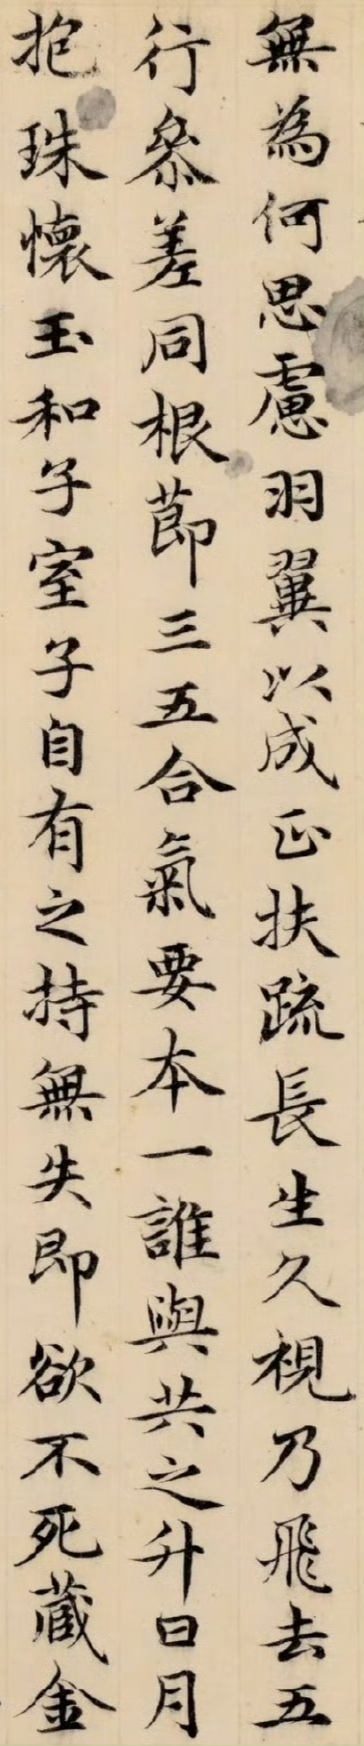 無為何思慮羽翼以成正扶疏長生久視乃飛去五
行參差同根節三五合氣要本一誰與共之升日月
抱珠懷玉和子室子自有之持無失即欲不死藏金